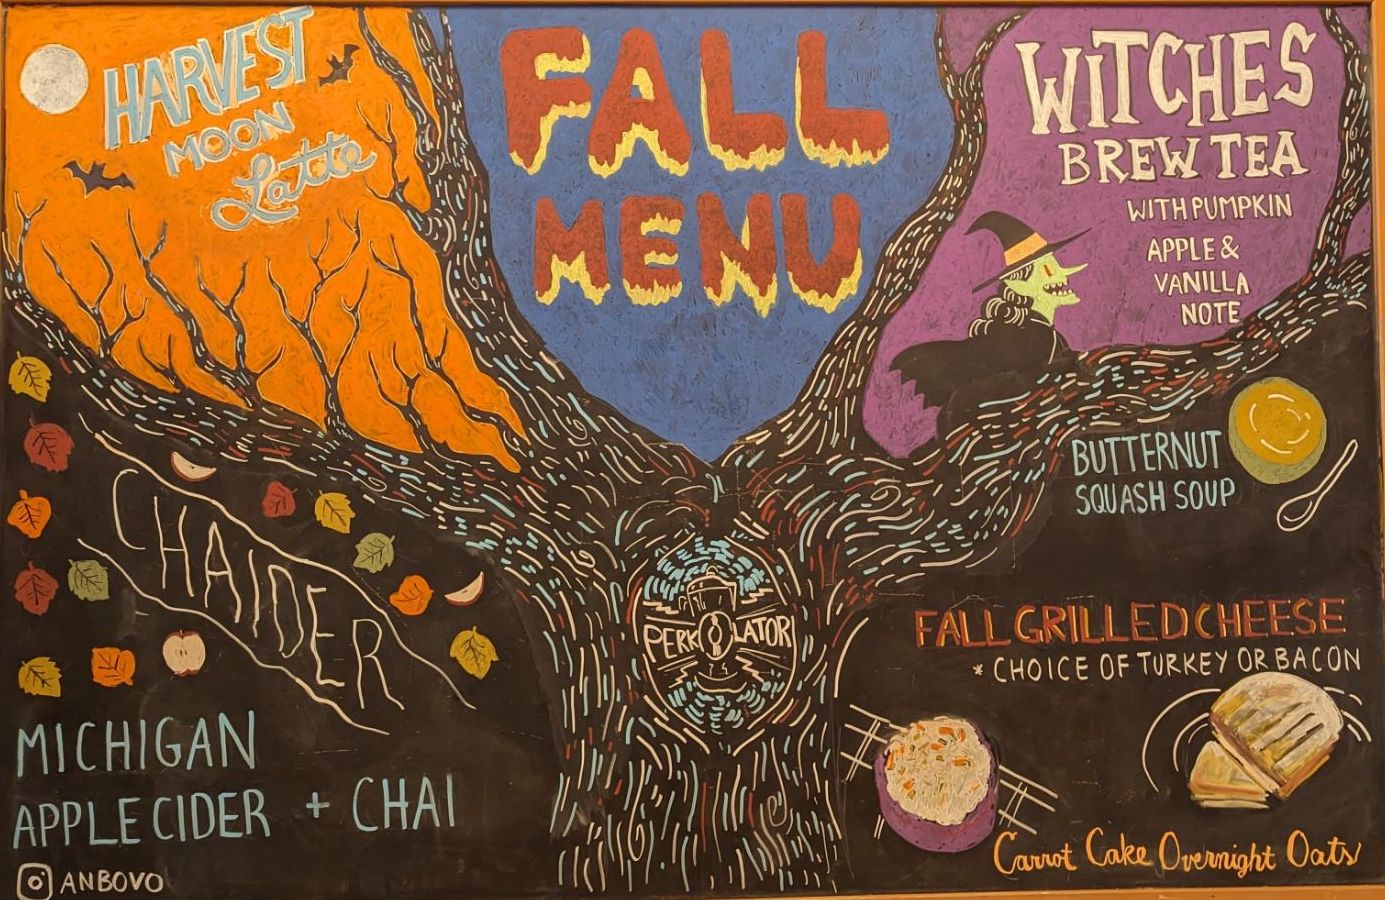 HARVEST
MOON
Latte
FALL
MENU
WITCHES
BREW TEA
WITH PUMPKIN
APPLE &
VANILLA
NOTE
BUTTERNUT
SQUASH SOUP
CHAIDER
PERKOLATOR
FALL GRILLED CHEESE
* CHOICE OF TURKEY OR BACON
MICHIGAN
APPLE CIDER + CHAI
Carrot Cake Overnight Oats
ANBOVO